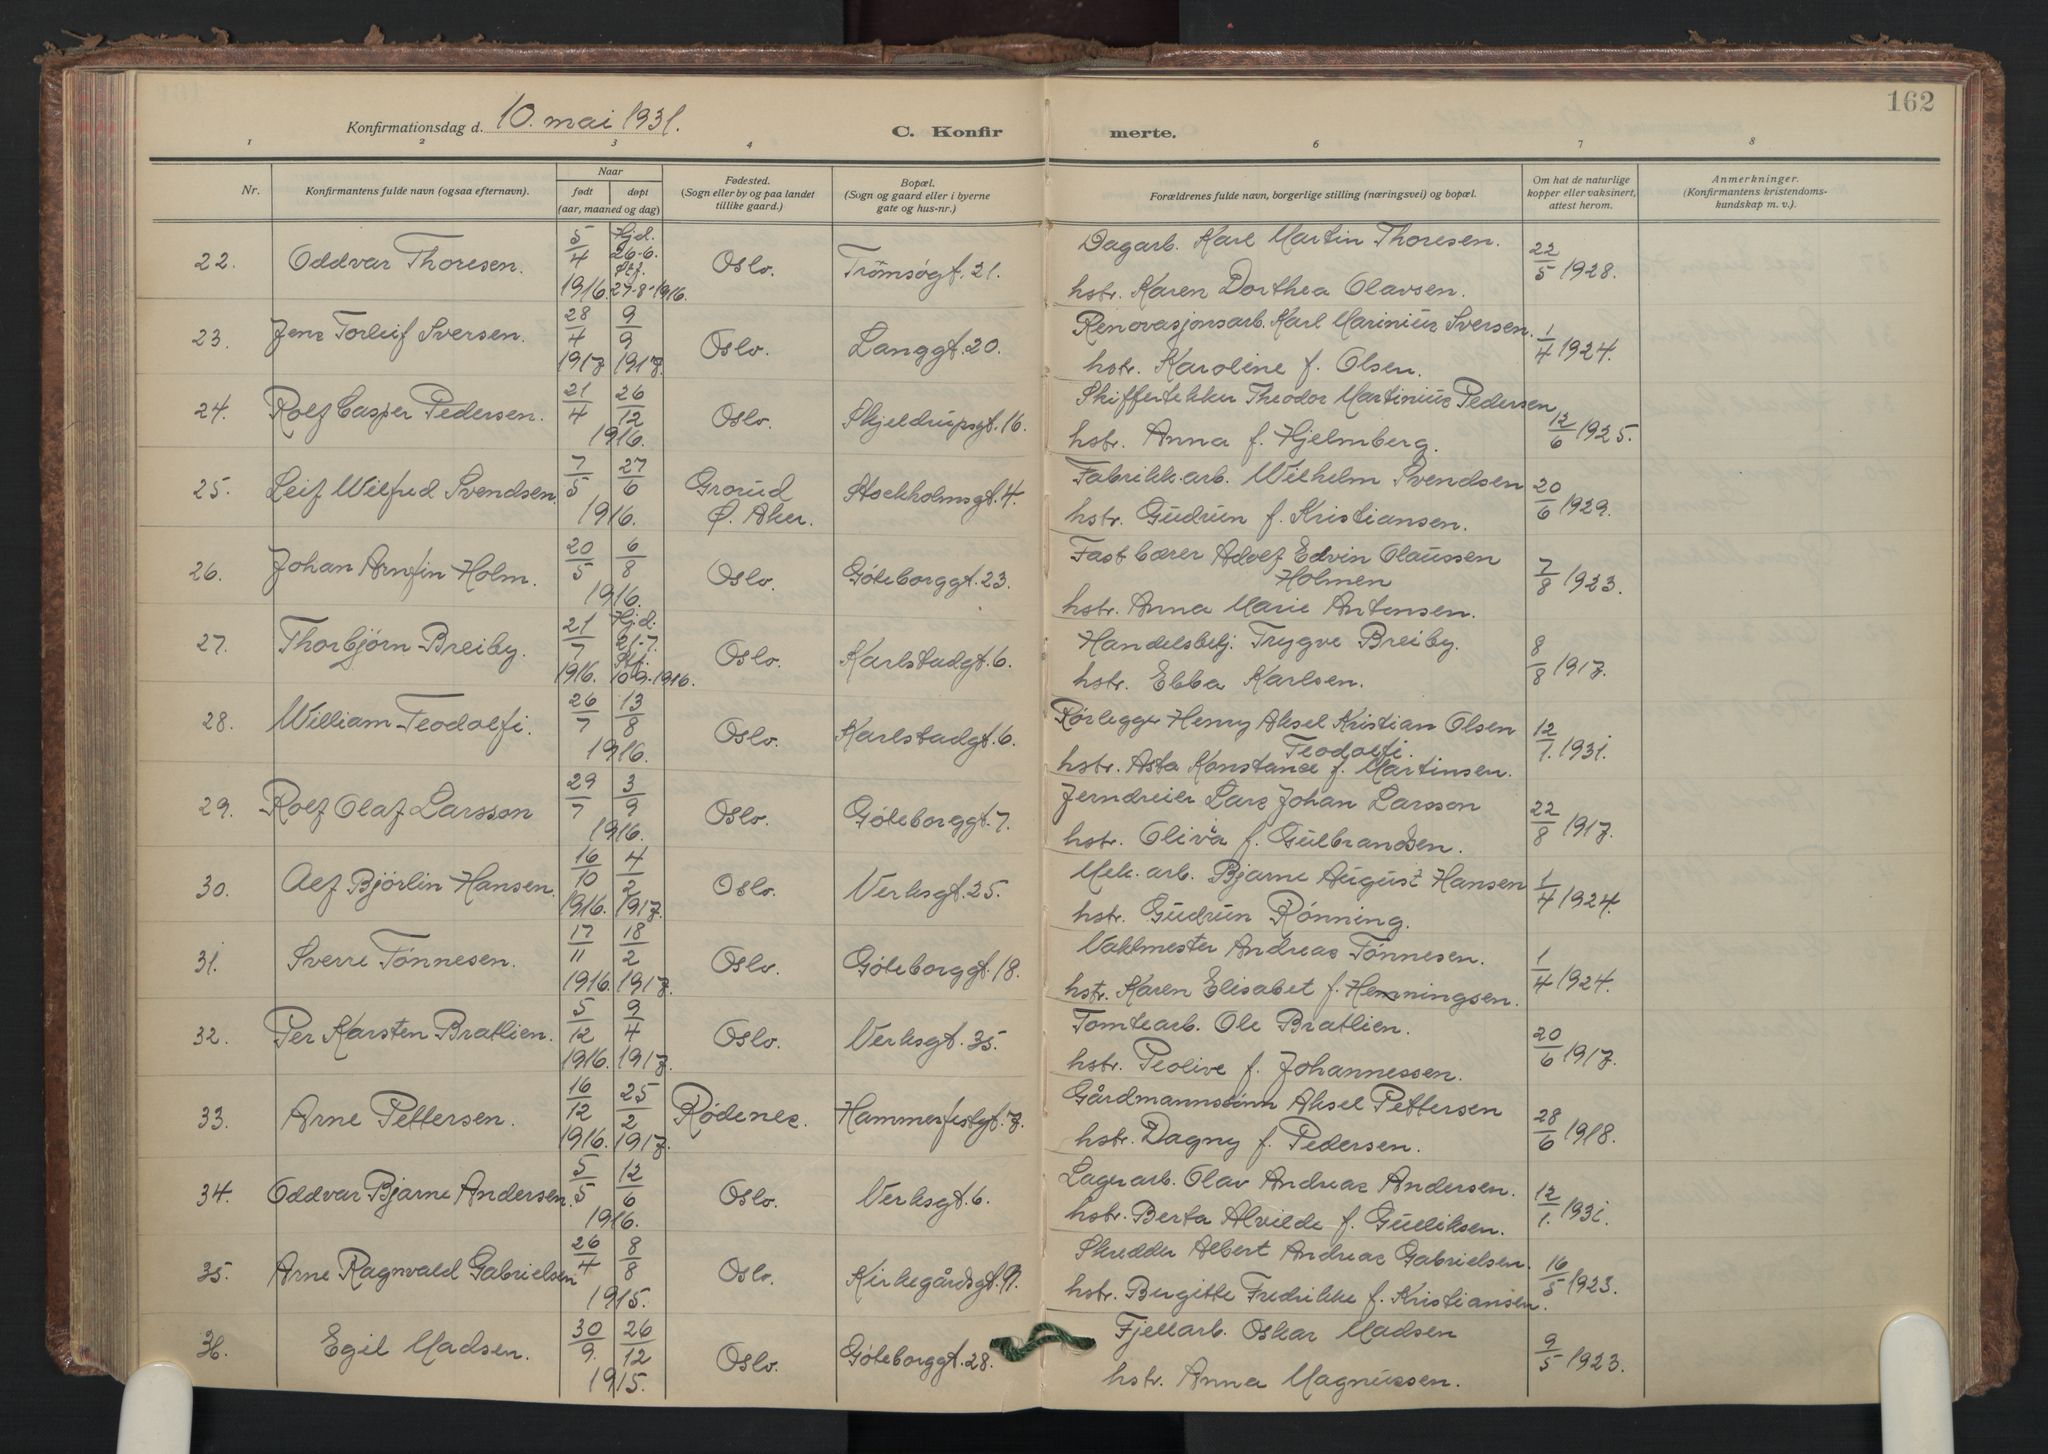 162
Konfirmationsdag d. 10. mai 1931.
C. Konfir merte.
1 2 3 4 6 7 8
Nr.
Konfirmantens fulde navn (ogsaa efternavn).
Naar
født døpt
(aar, maaned og dag)
Fødested.
(Sogn eller by og paa landet
tillike gaard.)
Bopæl.
(Sogn og gaard eller i byerne
gate og hus-nr.)
Forældrenes fulde navn, borgerlige stilling (næringsvei) og bopæl.
Om hat de naturlige
kopper eller vaksinert,
attest herom.
Anmerkninger.
(Konfirmantens kristendoms-
kundskap m. v.).
22. Oddvar Thoresen. 5/4 1916. Hjd. 26-6. Stf. 27-8-1916. Oslo. Tromsøgt. 21. Dagarb. Karl Martin Thoresen. 22/5 1928.
hstr. Karen Dorthea Olavsen.
23. Jens Torleif Sversen. 28/4 1917 9/9 1917. Oslo. Langgt. 20. Renovasjonsarb. Karl Marinius Sversen. 1/4 1924.
hstr. Karoline f. Olsen.
24. Rolf Casper Pedersen. 21/4 26/12 1916. Oslo. Skjeldrupsgt. 16. Skiffertekker Theodor Martinius Pedersen 12/6 1925.
hstr. Anna f. Hjelmberg.
25. Leif Wilfred Svendsen. 7/5 27/6 1916. Grorud Ø. Aker. Stockholmsgt. 4. Fabrikk.arb. Wilhelm Svendsen 20/6 1929.
hstr. Gudrun f. Kristiansen.
26. Johan Arnfin Holm. 20/5 6/8 1916. Oslo. Göteborggt. 23. Fastbærer Adolf Edvin Olaussen 7/8 1923.
Holmen
hstr. Anna Marie Antonsen.
27. Thorbjørn Breiby. 21/7 1916. Hjd. 21-7. Stf. 10-9-1916. Oslo. Karlstadgt. 6. Handelsbetj. Trygve Breiby. 8/8 1917.
hstr. Ebba Karlsen.
28. William Teodolfi. 26/7 13/8 1916. Oslo. Karlstadgt. 6. Rørlegger Henry Aksel Kristian Olsen 12/1. 1931.
Teodolfi.
hstr. Asta Konstance f. Martinsen.
29. Rolf Olaf Larsson 29/7 3/9 1916. Oslo. Göteborggt. 7. Jerndreier Lars Johan Larsson 22/8 1917.
hstr. Oliva f. Gulbrandsen.
30. Alf Bjørlin Hansen. 16/10 1916. 4/2 1917. Oslo. Verksgt. 25. Mek. arb. Bjarne August Hansen 1/4 1924.
hstr. Gudrun Rønning.
31. Sverre Tönnesen. 17/11 1916. 18/2 1917. Oslo. Göteborggt. 18. Vaktmester Andreas Tønnesen. 1/4 1924.
hstr. Karen Elisabet f. Hemmingsen.
32. Per Karsten Bratlien. 5/12 1916. 9/4 1917. Oslo. Verksgt. 35. Tomtearb. Ole Bratlien. 20/6 1917.
hstr. Peolive f. Johannessen.
33. Arne Pettersen. 16/12 1916. 25/2 1917. Rødenes. Hammerfestgt. 7. Gårdmannssönn Aksel Pettersen 28/6 1918.
hstr. Dagny f. Pedersen.
34. Oddvar Bjarne Andersen. 5/5 12/6 1916. Oslo. Verksgt. 6. Lagerarb. Olav Andreas Andersen. 12/1. 1931.
hstr. Berta Alvilde f. Gulliksen.
35. Arne Ragnvald Gabrielsen 26/4 8/8 1915. Oslo. Kirkegårdsgt. 9. Skredder Albert Andreas Gabrielsen. 16/5 1923.
hstr. Birgitte Fredrikke f. Kristiansen.
36. Egil Madsen. 30/9. 26/12 1915. Oslo. Göteborggt. 28. Fjellarb. Oskar Madsen 9/5 1923.
hstr. Anna Magnussen.